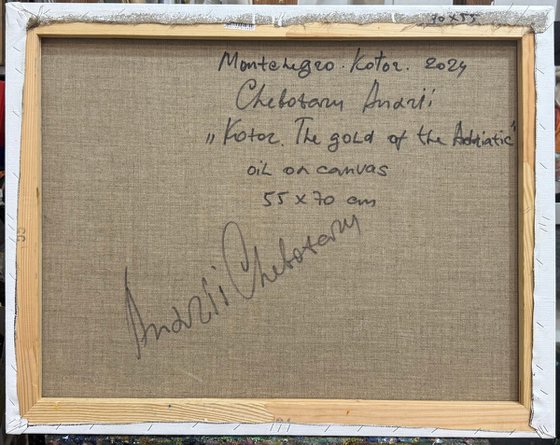 70x55
Montenegro. Kotor. 2024
Chebotaru Andrii
„Kotor. The gold of the Adriatic"
oil on canvas
55 x 70 cm
Andrii Chebotaru